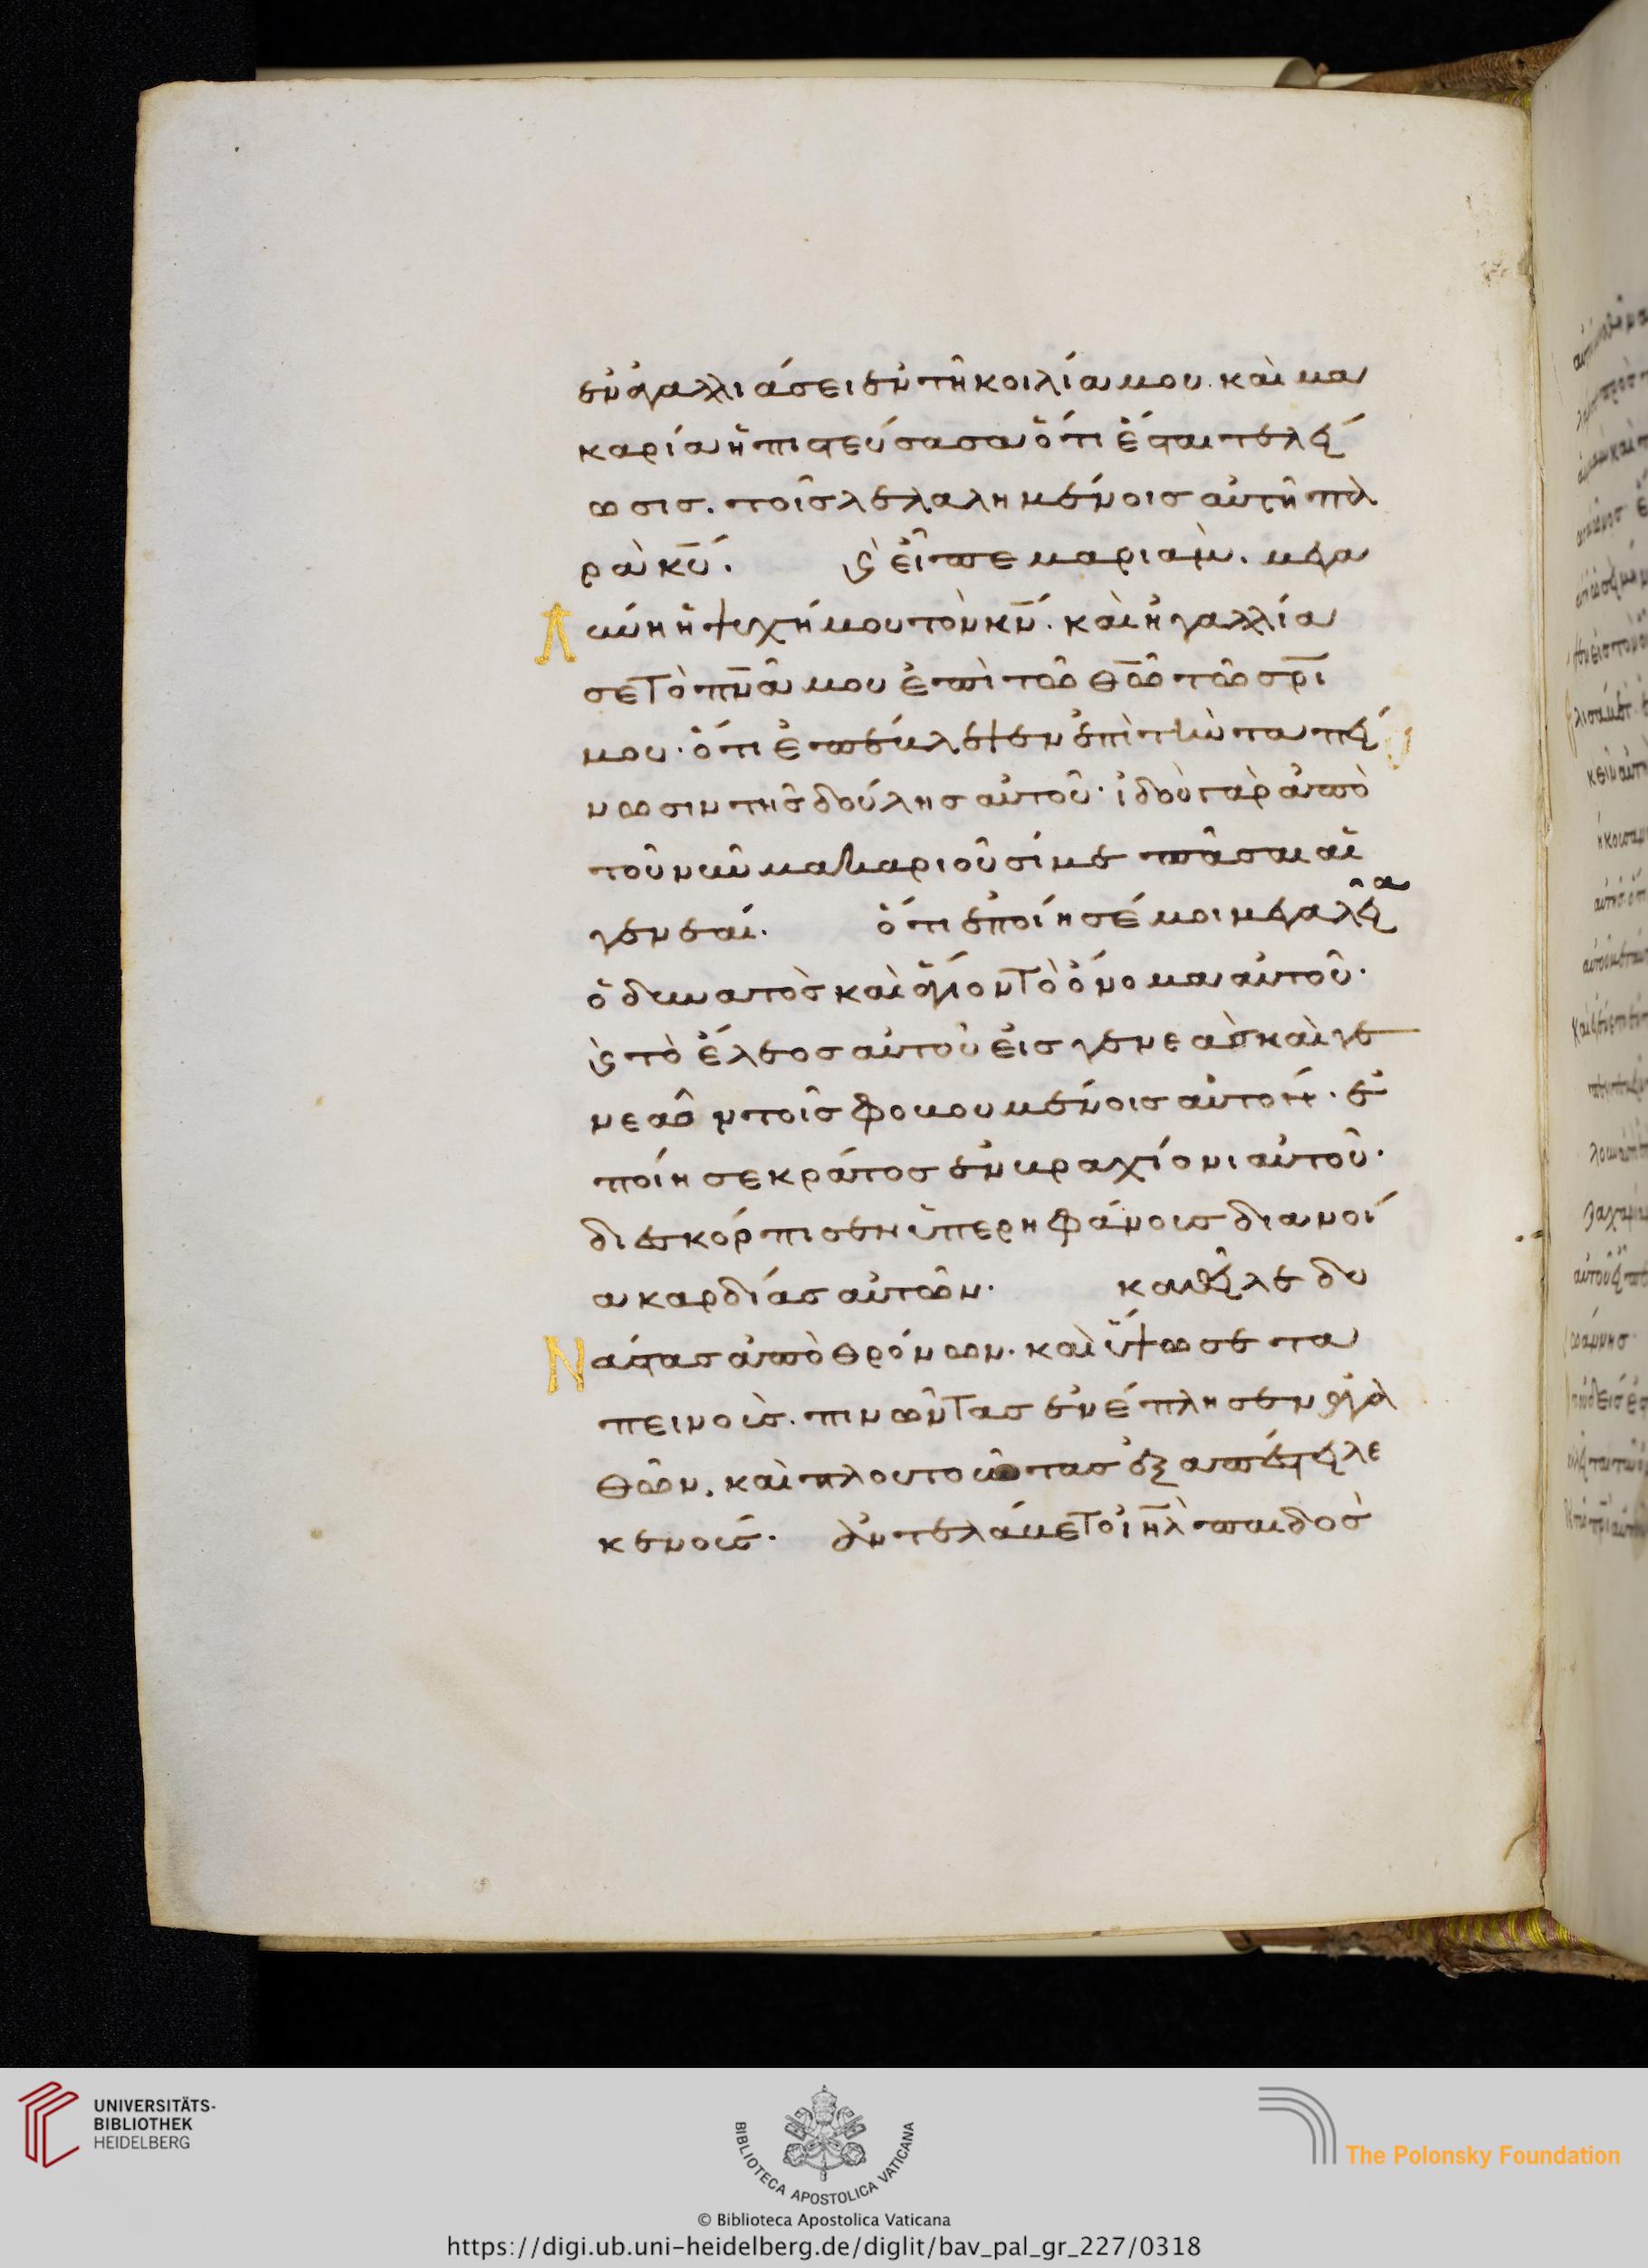 ἐν ἀγαλλιάσει ἐν τῆ κοιλία μου. καὶ μα
καρία ἡ πιστεύσασα ὅτι ἔσται τελεί
ωσις. τοῖς λελαλημένοις αὐτῆ πα
ρὰ κ̅υ̅. καὶ εἶπε μαριάμ. μεγα
Λ
ύνη ἡ ψυχή μου τὸν κ̅ν̅. καὶ ἠγαλλία
σε τὸ π̅ν̅α̅ μου ἐπὶ τῶ θ̅ω̅ τῶ σ̅ρ̅ι̅
μου. ὅτι ἐπέβλεψεν ἐπὶ τὴν ταπεί
νωσιν τῆς δούλης αὐτοῦ. ἰδοὺ γὰρ ἀπὸ
τοῦ νῦν μακαριοῦσί με πᾶσαι αἱ
γενεαί. ὅτι ἐποίησέ μοι μεγαλεῖα
ὁ δυνατὸς καὶ ἅγιον τὸ ὄνομα αὐτοῦ.
καὶ τὸ ἔλεος αὐτοῦ εἰς γενεὰς καὶ γε
νεὰς τοῖς φοβουμένοις αὐτόν. ἐ
ποίησε κράτος ἐν βραχίονι αὐτοῦ.
διεσκόρπισεν ὑπερηφάνοις διανοί
α καρδίας αὐτῶν. καθεῖλε δυ
Ν
άστας ἀπὸ θρόνων. καὶ ὕψωσε τα
πεινούς. πινῶντας ἐνέπλησεν ἀγα
θῶν. καὶ πλουτοῦντας ἐξαπέστειλε
κενούς. ἀντελάβετο ἰ̅η̅λ̅ παιδὸς
UNIVERSITÄTS-
BIBLIOTHEK
HEIDELBERG
BIBLIOTECA APOSTOLICA VATICANA
The Polonsky Foundation
© Biblioteca Apostolica Vaticana
https://digi.ub.uni-heidelberg.de/diglit/bav_pal_gr_227/0318